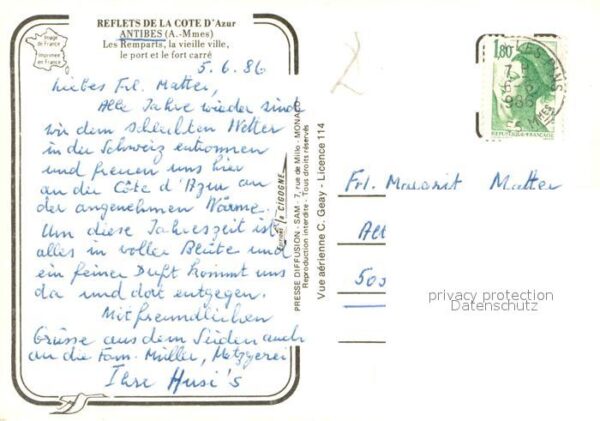 REFLETS DE LA COTE D'Azur
ANTIBES (A.-Mmes)
Les Remparts, la vieille ville,
le port et le fort carré
Image
de France
Imprimée en
France
5.6.86
Liebes Frl. Matter,
Alle Jahre wieder sind
wir dem schlechten Wetter
in der Schweiz entronnen
und freuen uns hier
an der Côte d'Azur an
der angenehmen Wärme.
Um diese Jahreszeit ist
alles in voller Blüte und
ein feiner Duft kommt uns
da und dort entgegen.
Mit freundlichen
Grüsse aus dem Süden auch
an die Fam. Müller, Metzgerei
Ihre Husi's
la CIGOGNE
PRESSE DIFFUSION - SAM - 7, rue de Millo - MONACO
Reproduction interdite - Tous droits réservés
Vue aérienne C. Geay - Licence 114
1,80
REPUBLIQUE FRANÇAISE
1986
Frl. Matter
privacy protection
Datenschutz